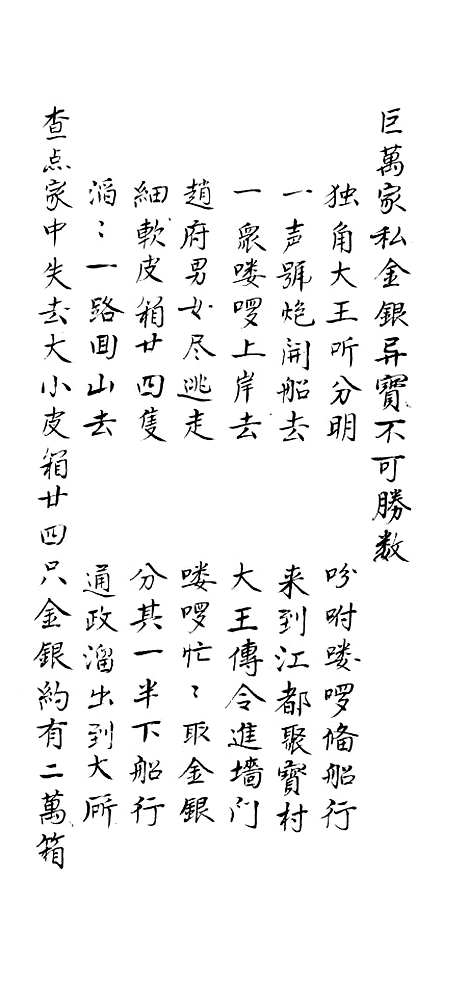 巨萬家私金銀异寶不可勝数
独角大王听分明 吩咐喽啰俻船行
一声號炮開船去 来到江都聚寶村
一衆喽啰上岸去 大王傳令進墻门
趙府男女尽逃走 喽啰忙〻取金銀
細軟皮箱廿四隻 分其一半下船行
滔〻一路囬山去 通政溜出到大所
查点家中失去大小皮箱廿四只金銀約有二萬箱